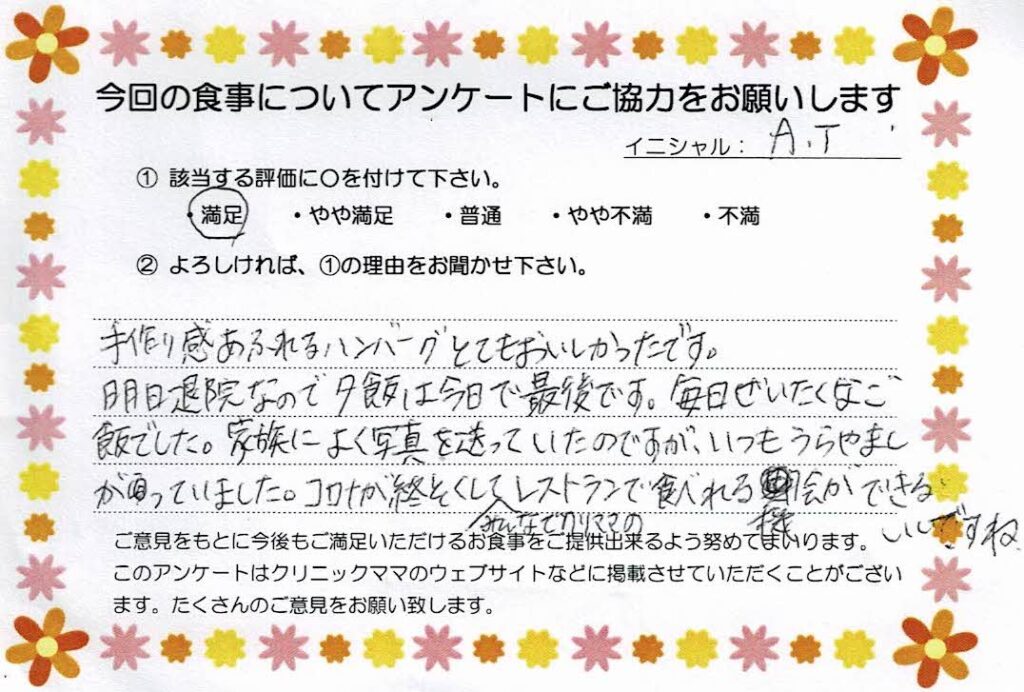 今回の食事についてアンケートにご協力をお願いします
イニシャル： A.T
① 該当する評価に〇を付けて下さい。
・満足 ・やや満足 ・普通 ・やや不満 ・不満
② よろしければ、①の理由をお聞かせ下さい。
手作り感あふれるハンバーグとてもおいしかったです。
明日退院なので夕飯は今日で最後です。毎日ぜいたくなご
飯でした。家族によく写真を送っていたのですが、いつもうらやまし
が っていました。コロナが終そくして レストランで食べれる 会ができる
みんなでクリママの 機 いいですね
ご意見をもとに今後もご満足いただけるお食事をご提供出来るよう努めてまいります。
このアンケートはクリニックママのウェブサイトなどに掲載させていただくことがござい
ます。たくさんのご意見をお願い致します。